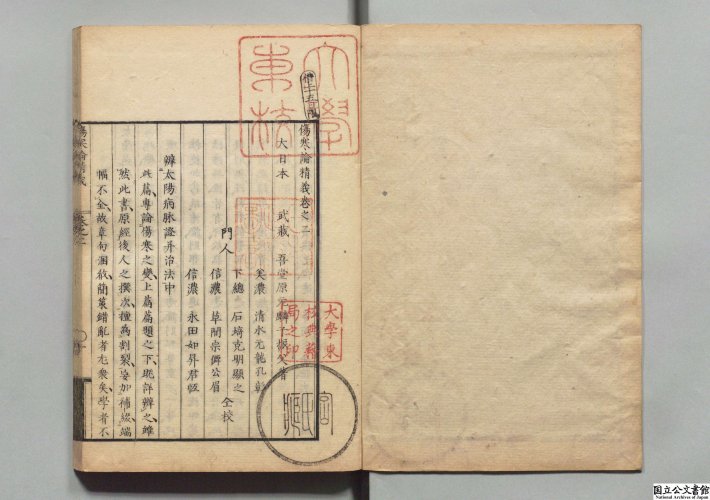 傷寒論精義卷之三
大日本 武藏 吾堂原元麟子振父著
美濃 清水元龍孔彰
下總 石埼克明顯之
門人
信濃 草間宗 公眉
仝校
信濃 永田如昇君恆
辨太陽病脉證并治法中
此篇專論傷寒之變上篇篇題之下既詳辨之雖
然此書原經後人之撰次種為割裂妄加補綴端
幅不全故章句溷 簡策錯亂者尤衆矣學者不
傷寒論精義
卷之三
大學東校
大學東校典籍局之印
国立公文書館
National Archives of Japan